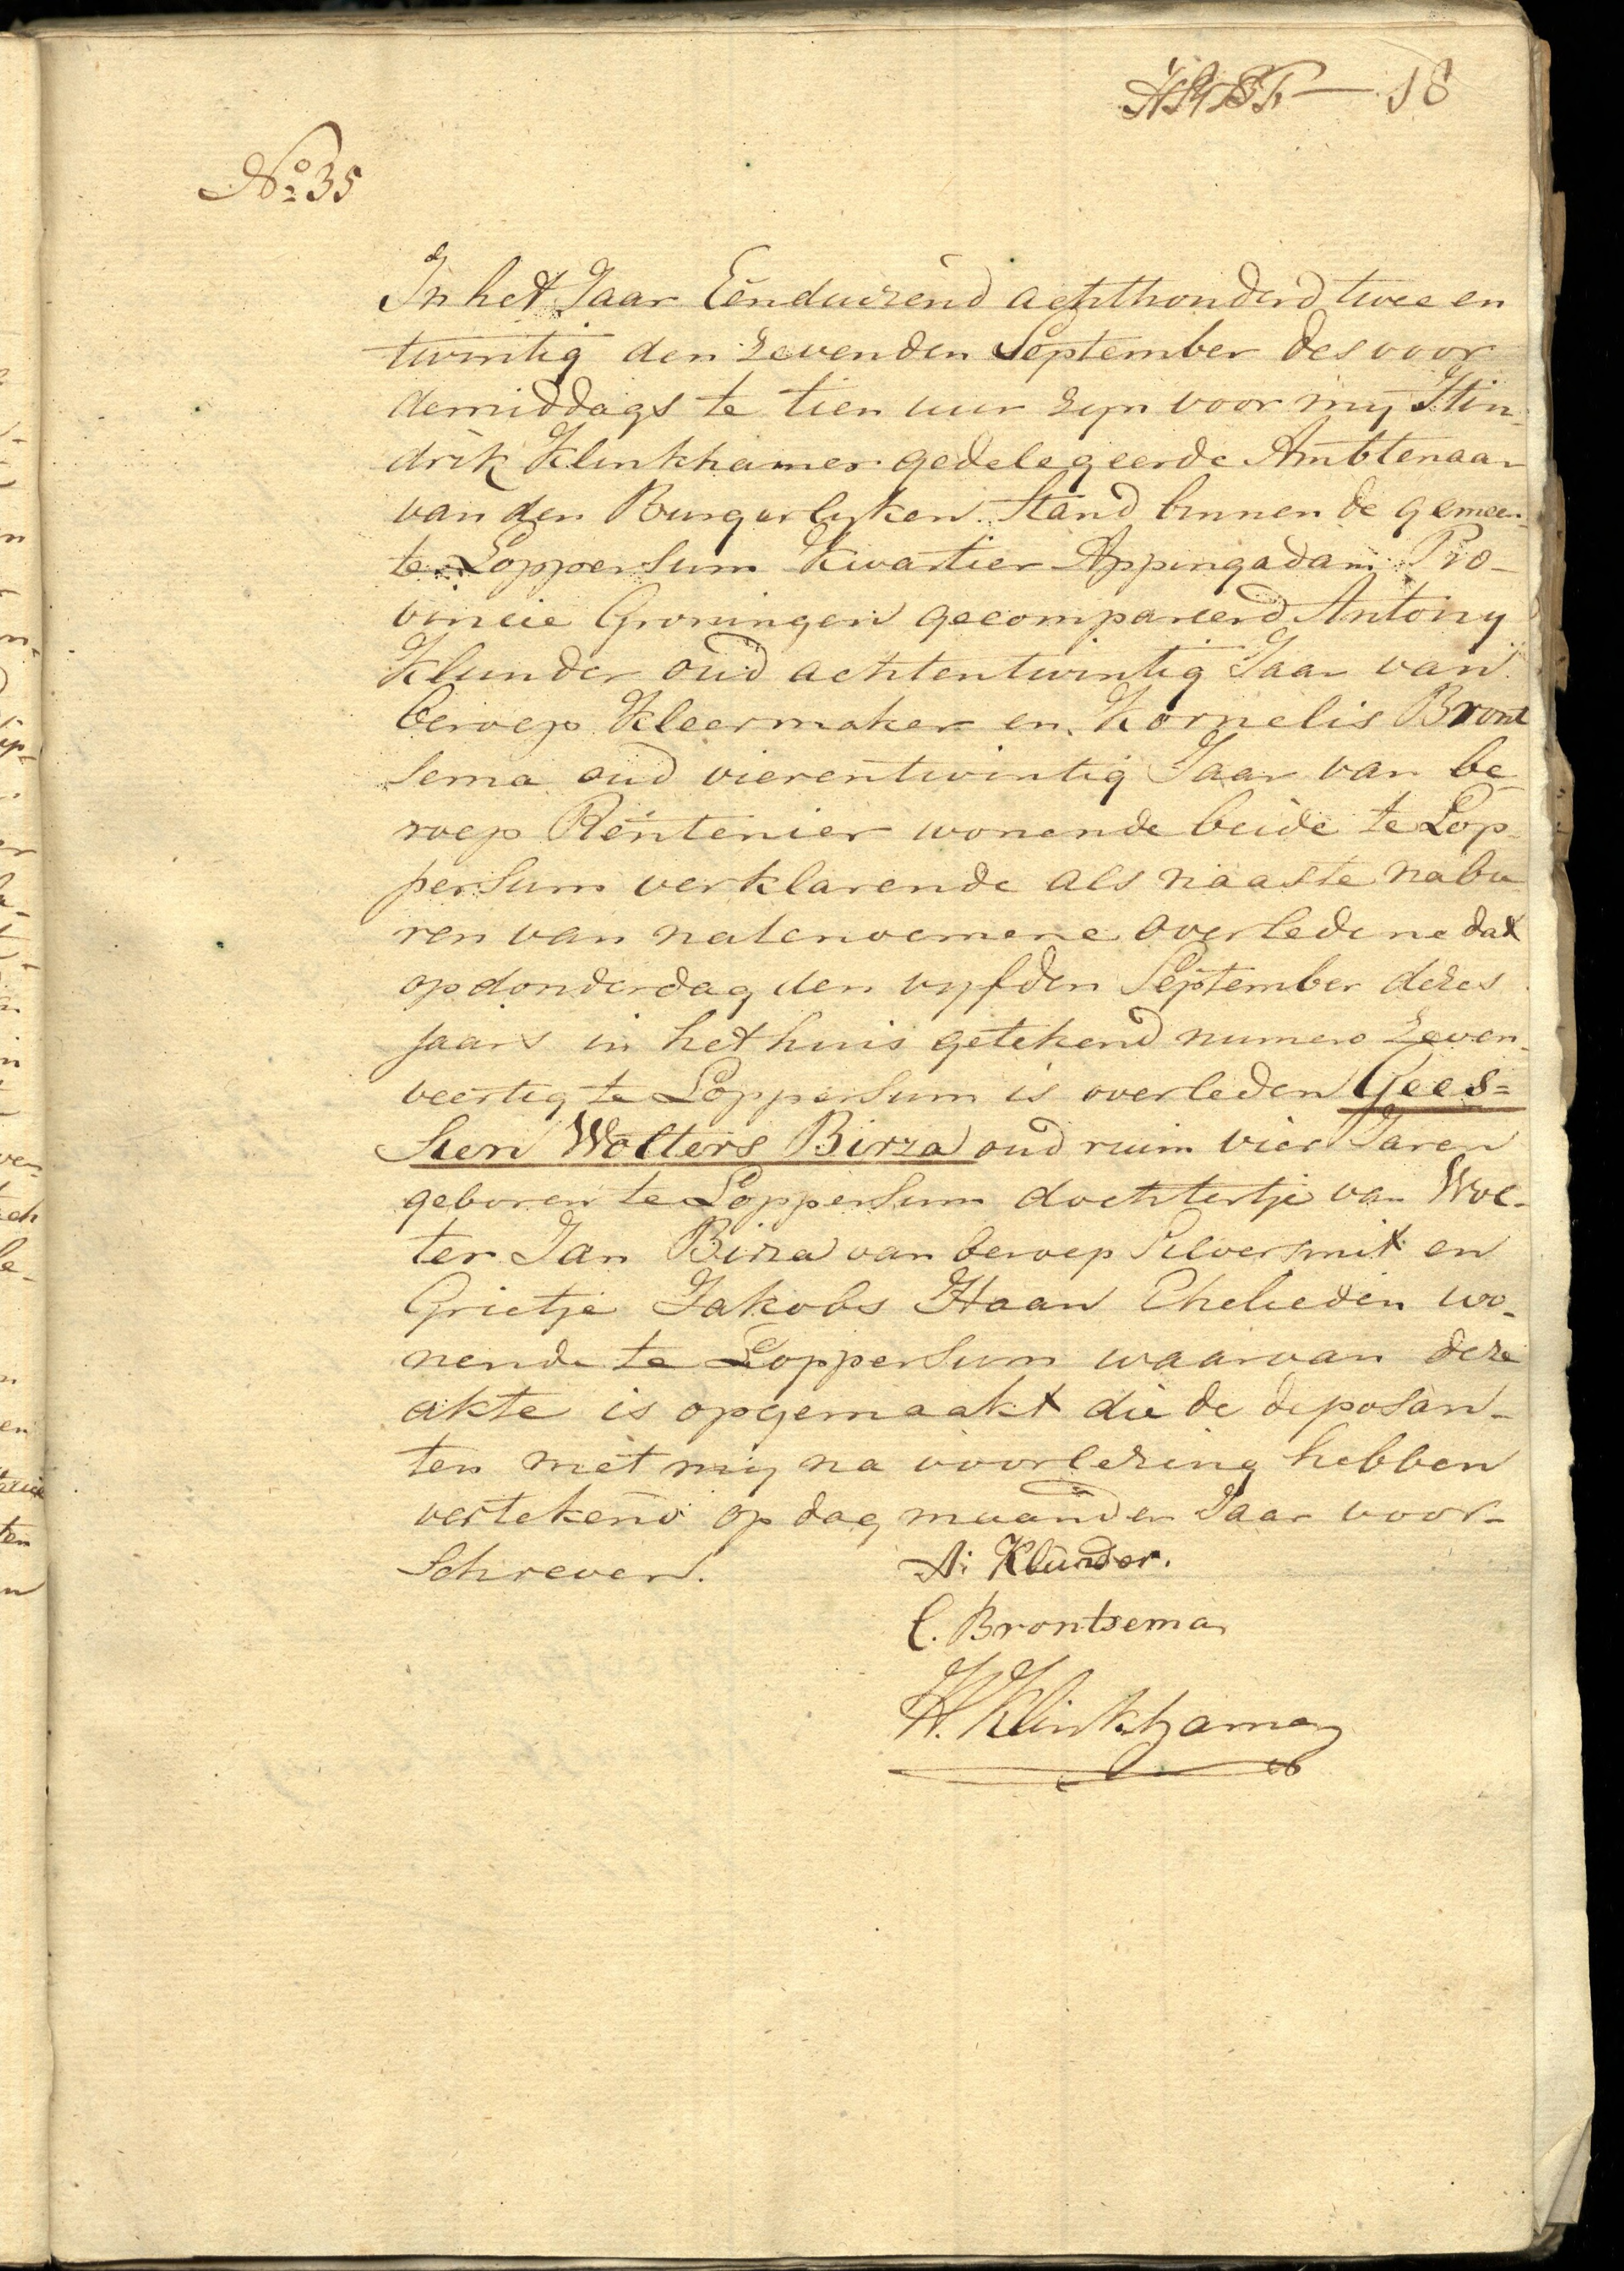 18
No 35
In het Jaar Eenduizend achthonderd twee en
twintig den zevenden September des voor
demiddags te tien uur zijn voor mij Hin-
drik Klinkhamer gedelegeerde Ambtenaar
van den Burgerlijken Stand binnen de gemeen-
te Loppersum Kwartier Appingadam Pro-
vincie Groningen gecompareerd Antony
Klunder oud achtentwintig Jaar van
beroep Kleermaker en Kornelis Bront
sema oud vierentwintig Jaar van be-
roep Rentenier wonende beide te Lop-
persum verklarende als naaste nabu
ren van natenoemene overledene dat
op donderdag den vijfden September dezes
jaars in het huis getekend numero zeven-
veertig te Loppersum is overleden Gees-
sien Wolters Birza oud ruim vier Jaren
geboren te Loppersum dochtertje van Wol-
ter Jan Birza van beroep Silversmit en
Grietje Jakobs Haan Ehelieden wo-
nende te Loppersum waarvan deze
akte is opgemaakt die de deposan-
ten met mij na voorlezing hebben
vertekend op dag maand en Jaar voor-
schreven.
A: Klunder.
C. Brontsema
H. Klinkhamer